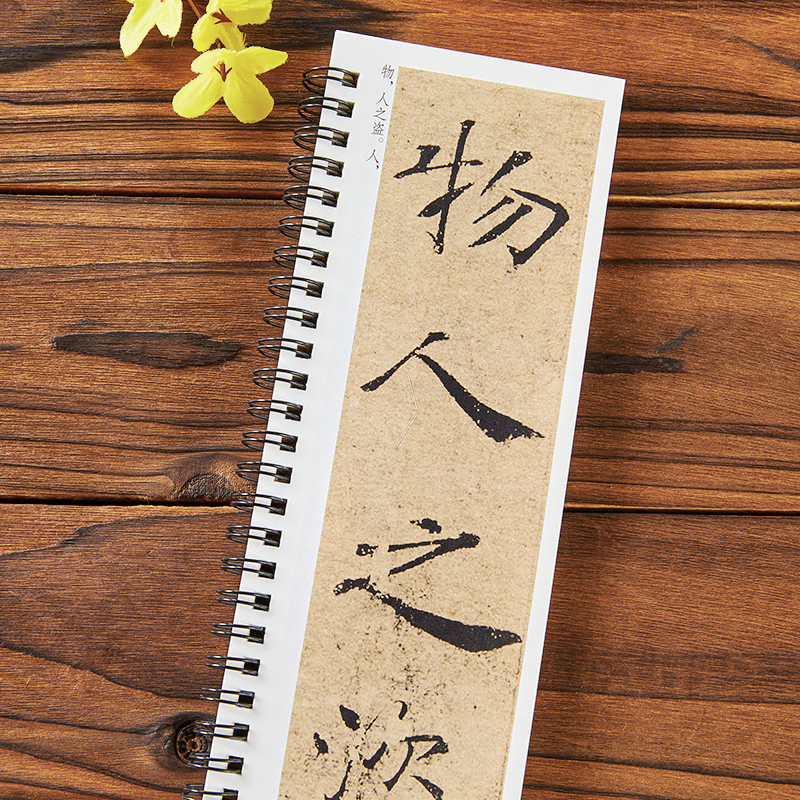 物，人之盗。人，
物人之